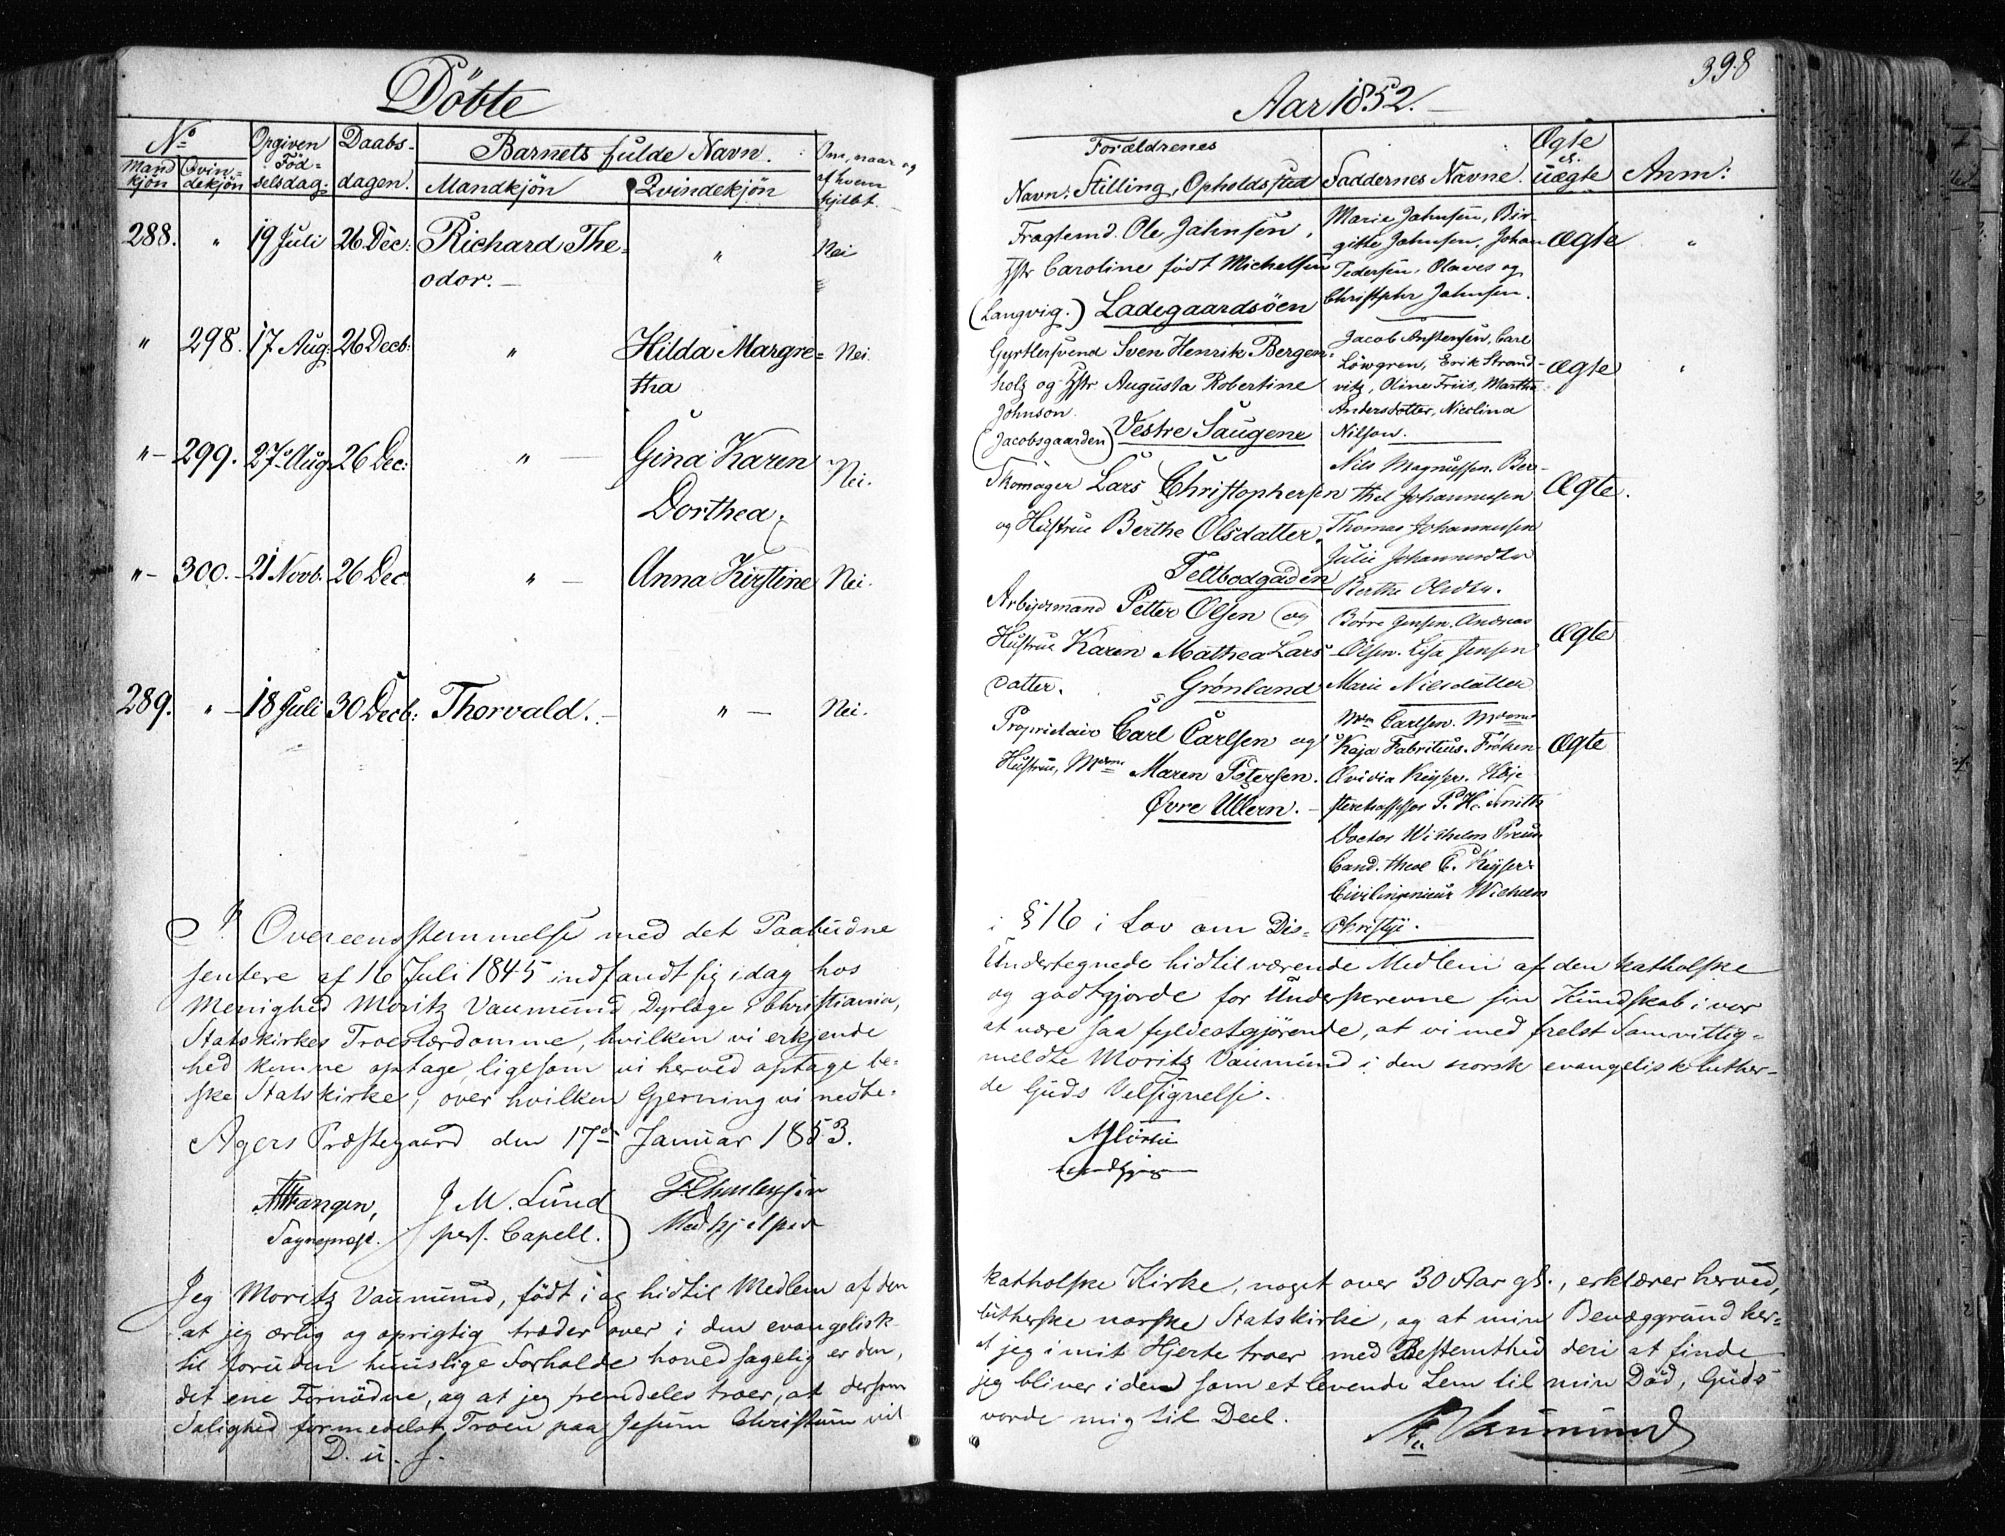 398
Döbte
Aar 1852.
No
Opgiven
Daabs-
Barnets fulde Navn.
Om, naar og
Forældrenes
Ægte
Mand
Qvin-
Fød-
dagen.
Mandkjön
Qvindekjön
af hvem
Navn, Stilling, Opholdssted
Faddernes Navne.
Uægte
Anm:
kjön
dekjön
selsdag.
hjdbt.
288. " 19 Juli 26 Dec: Richard The- " Nei
odor.
Fragtemd. Ole Jahnsen,
Hstr Caroline født Michelsen
(Langvig.) Ladegaardsöen
Marie Jahnsen, Bir-
gitte Jahnsen, Johan
Pedersen, Olaves og
Christopher Jahnsen.
Ægte "
" 298. 17 Aug: 26 Decb: " Hilda Margre- Nei.
tha
Gyrtlersvend Sven Henrik Bergen-
holz og Hstr Augusta Robertine
Johnson.
(Jacobsgaarden) Vestre Saugene
Löwgren, Erik Strand-
vitz, Oline Friis, Martha
Andersdotter, Nicolina
Nilson.
Ægte "
" 299. 27 Aug 26 Dec: " Gina Karen Nei.
Dorthea.
Skomager Lars Christophersen
og Hustrue Berthe Olsdatter.
Feltbodgaden
Nils Magnussen. Ber-
thel Johannessen
Thomas Johannessen
Julie Johannesdtr
Berthe Olsdtr.
Ægte.
" 300. 21 Novb. 26 Dec " Anna Kirstine Nei.
Arbeidsmand Petter Olsen og
Hustrue Karen Mathea Lars-
datter. Grønland
Børre Jensen. Andreas
Olsen. Lisa Jensen
Marie Nilsdatter
Ægte
289. " 18 Juli 30 Decb: Thorvald. " Nei.
Proprietair Carl Carlsen og
Hustrue, Mdme Maren Petersen.
Øvre Ullern.
Mdm Carlsen. Mdme
Kaja Fabritius. Frøken
Ovidia Keyser. Høje
steretsassessor P. H. Smith
Doctor Wilhelm
Cand. theol C. Keyser
Civilingenieur Wilhelm
Christje.
Ægte
I Overeensstemmelse med det Paabudne i § 16 i Lov om Dis-
sentere af 16 Juli 1845 indfandt sig idag hos Undertegnede hidtil værende Medlem af den katholske
Menighed Moritz Vaumund, Dyrlæge i Christiania, og godtgjorde for Underskrevne sin Kundskab i vor
Statskirkes Troeslærdomme, hvilken vi erkjende at være saa fyldestgjørende, at vi med frelst Samvittig-
hed kunne optage, ligesom vi herved optage be- meldte Moritz Vaumund i den norsk evangelisk luther-
ske Statskirke, over hvilken Gjerning vi nedbe- de Guds Velsignelse.
Agers Præstegaard den 17de Januar 1853.
Wangen,
Sognepræst.
J M. Lund
pers. Capell.
Medhjelper
Jeg Moritz Vaumund, født i og hidtil Medlem af den katholske Kirke, noget over 30 Aar gl., erklærer herved,
at jeg ærlig og oprigtig træder over i den evangelisk- lutherske norske Statskirke, og at min Bevæggrund her-
til foruden huuslige Forholde hovedsagelig er den, at jeg i mit Hjerte troer med Bestemthed deri at finde
det ene Fornødne, og at jeg fremdeles troer, at dersom jeg bliver i den som et levende Lem til min Død, Guds
Salighed formedelst Troen paa Jesum Christum vil vorde mig til Deel.
D. u. s.
M Vaumund